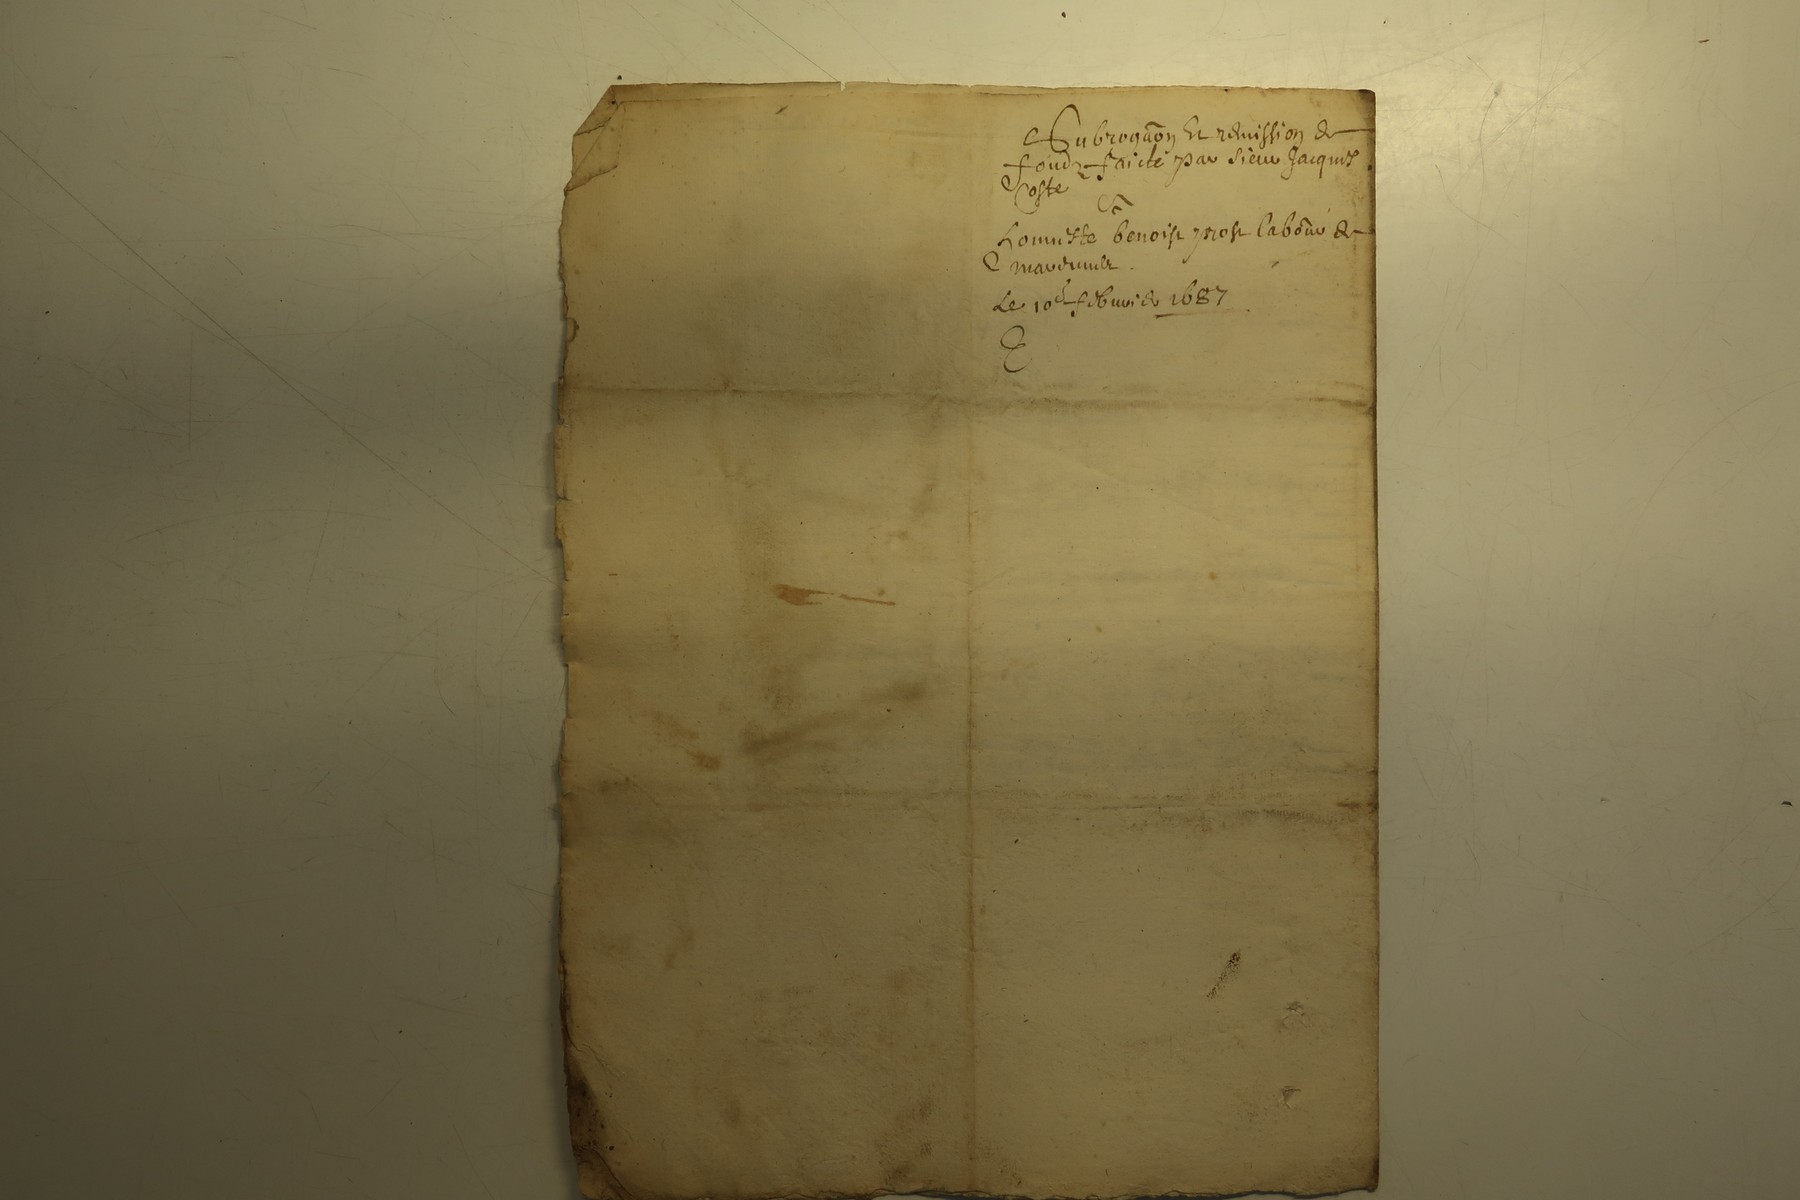 Subrogãon et remission de
fondz faicte par sieur Jacques
Coste
A
honneste benoist prost labour de
Le 10e febvrier 1687